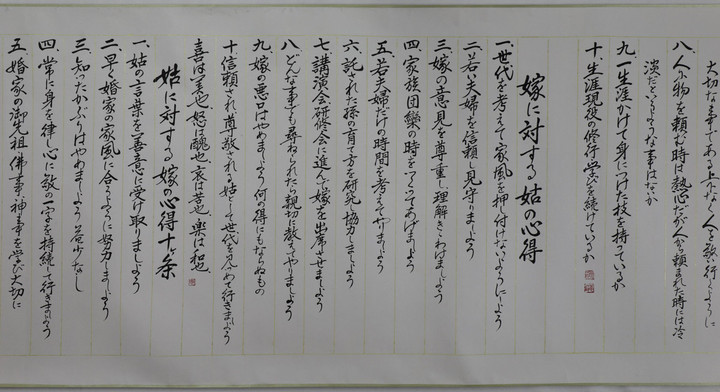 大切な事である上になく人を敬い行くように
八、人に物を頼む時は熱心だが人から頼まれた時には冷
淡だというような事はないか
九、一生涯かけて身につけた技を持っているか
十、生涯現役の修行学びを続けているか
嫁に対する姑の心得
一、世代を考えて家風を押し付けないようにしよう
二、若い夫婦を信頼し見守りましよう
三、嫁の意見を尊重し理解きこわけましよう
四、家族団欒の時をつくってあげましよう
五、若夫婦だけの時間を考えてやりましよう
六、託された孫の育て方を研究し協力しましよう
七、講演会研修会に進んで嫁を出席させましよう
八、どんな事でも尋ねられたら親切に教えてやりましよう
九、嫁の悪口はやめましよう 何の得にもならぬもの
十、信頼され尊敬される姑として世代を見つめて行きましよう
喜は美也 怒は醜也 哀は苦也 楽は和也
姑に対する嫁の心得十ヶ条
一、姑の言葉を善意に受け取りましよう
二、早く婚家の家風に合うように努力しましよう
三、知ったかぶりはやめましよう 益少なし
四、常に身を律し心に敬の一字を持続して行きましよう
五、婚家の御先祖 佛事 神事を学び大切に